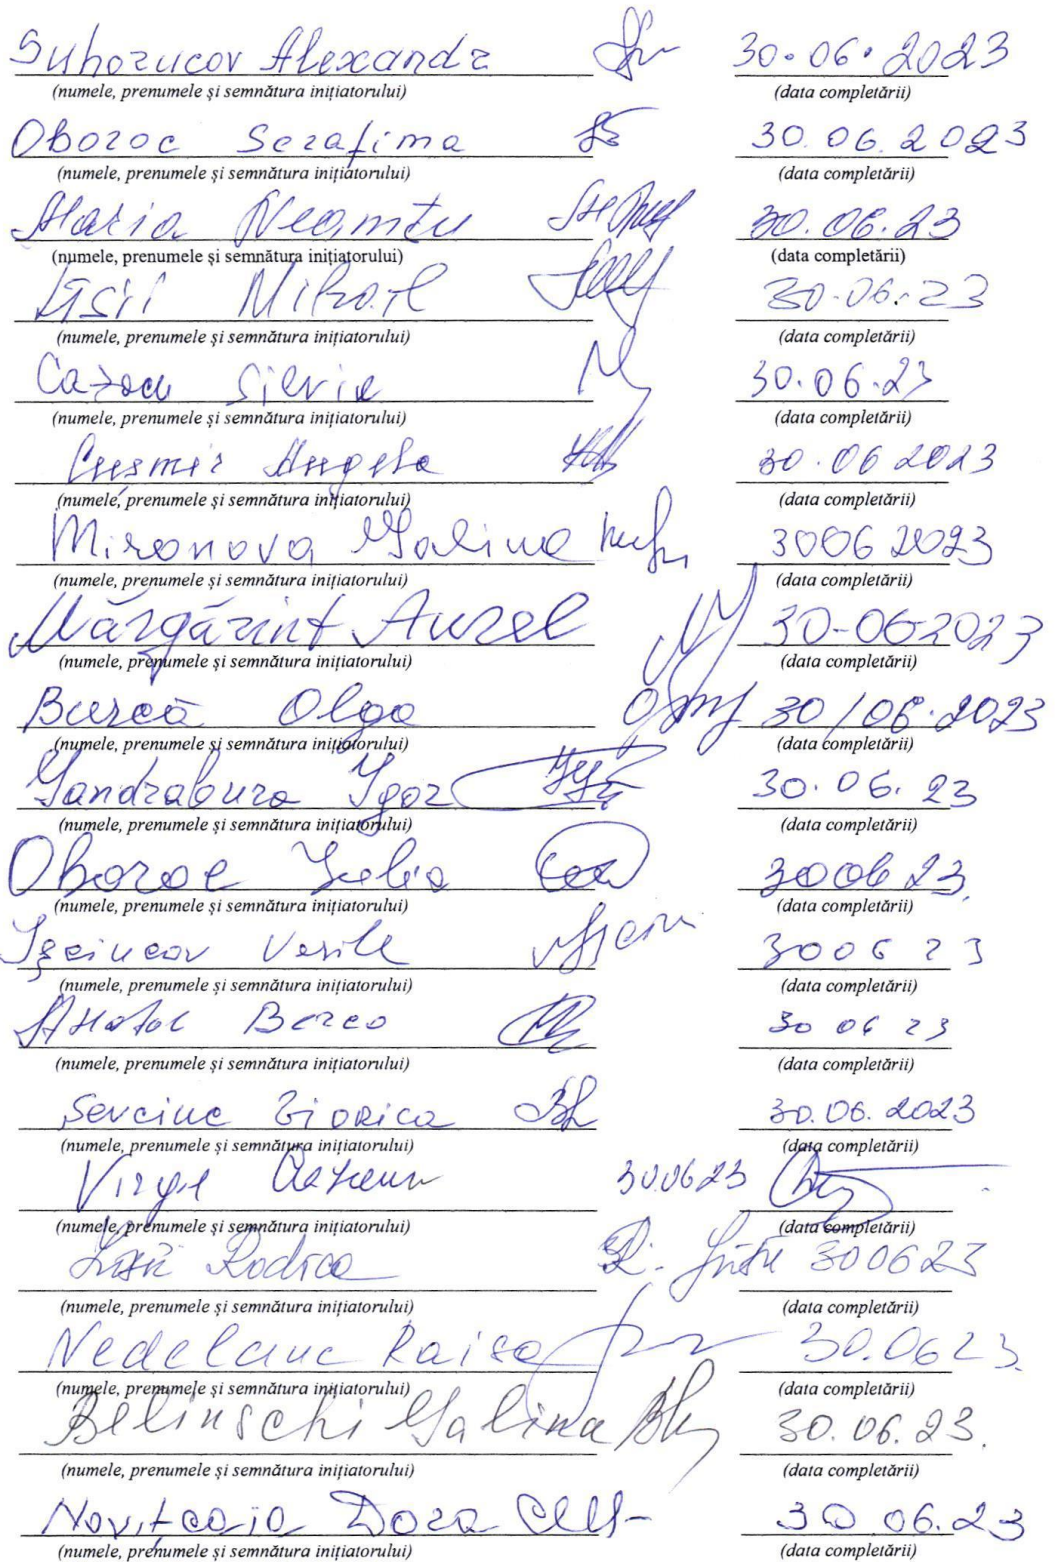 Suhorucov Alexandr 30.06.2023
(numele, prenumele și semnătura inițiatorului) (data completării)
Oboroc Serafima 30.06.2023
(numele, prenumele și semnătura inițiatorului) (data completării)
Maria Neamțu 30.06.23
(numele, prenumele și semnătura inițiatorului) (data completării)
Lîsîi Mihail 30.06.23
(numele, prenumele și semnătura inițiatorului) (data completării)
Cazacu Silvia 30.06.23
(numele, prenumele și semnătura inițiatorului) (data completării)
Cușmir Angela 30.06 2023
(numele, prenumele și semnătura inițiatorului) (data completării)
Mironova Galina 3006 2023
(numele, prenumele și semnătura inițiatorului) (data completării)
Mărgărint Aurel 30-06-2023
(numele, prenumele și semnătura inițiatorului) (data completării)
Burcă Olga 30/06.2023
(numele, prenumele și semnătura inițiatorului) (data completării)
Gandrabura Igor 30.06.23
(numele, prenumele și semnătura inițiatorului) (data completării)
Oboroc Iulia 3006 23.
(numele, prenumele și semnătura inițiatorului) (data completării)
Vasile 3006 23
(numele, prenumele și semnătura inițiatorului) (data completării)
Anatol Berco 30 06 23
(numele, prenumele și semnătura inițiatorului) (data completării)
Sevciuc Viorica 30.06.2023
(numele, prenumele și semnătura inițiatorului) (data completării)
Virgil 30.06 23
(numele, prenumele și semnătura inițiatorului) (data completării)
Rodica 300623
(numele, prenumele și semnătura inițiatorului) (data completării)
Nedelciuc Raisa 30.06 23.
(numele, prenumele și semnătura inițiatorului) (data completării)
Belinschi Galina 30.06.23.
(numele, prenumele și semnătura inițiatorului) (data completării)
Novițcaia Dora 30 06.23
(numele, prenumele și semnătura inițiatorului) (data completării)